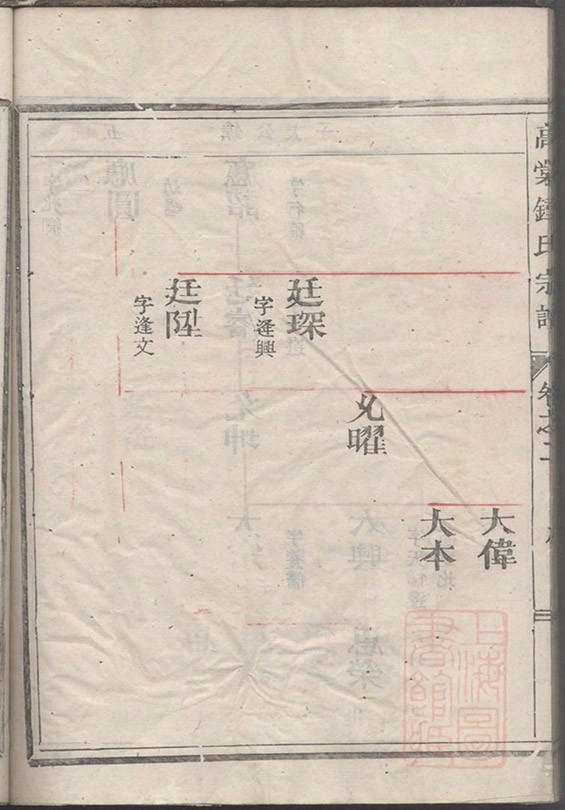 高棠鍾氏宗譜
卷之二
大偉
大本
允曜
廷琛
字逢興
廷陞
字逢文
上海圖
書館藏